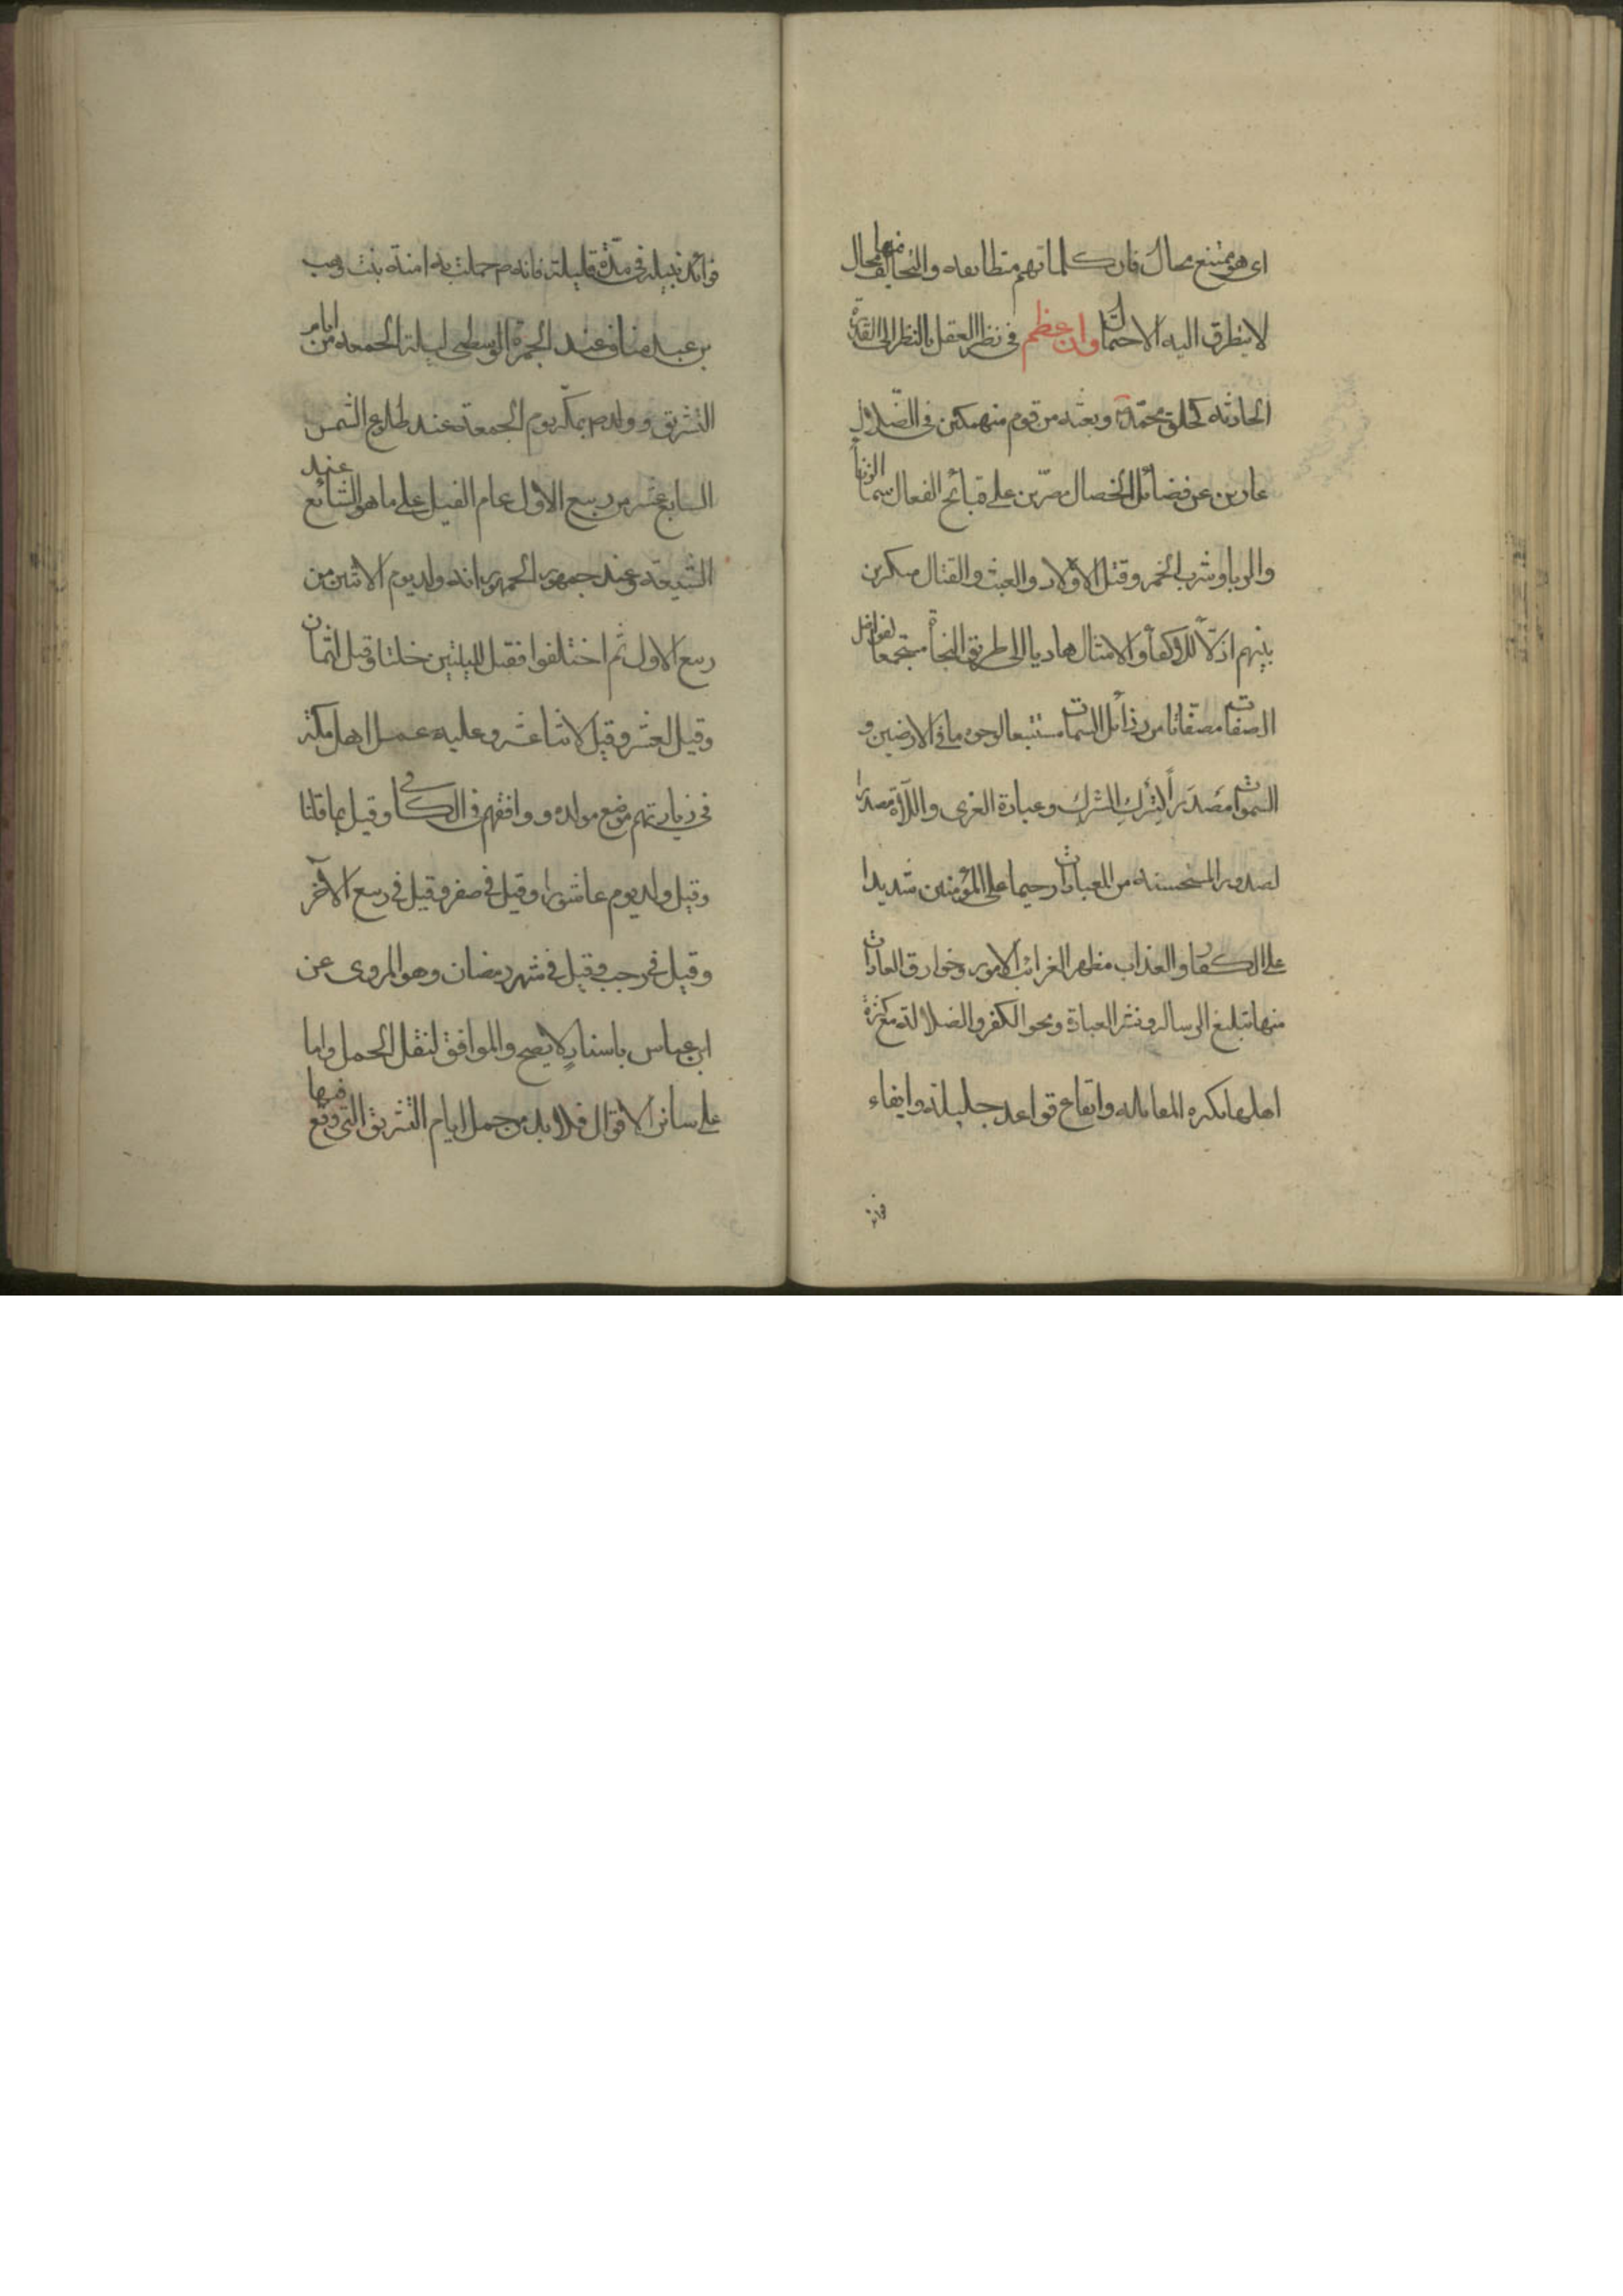 اى هو ممتنع محال فان كلماتهم متطابقه والتخالف فيها محال
لا يتطرق اليه الاحتمال وان عظم فى نظر العقل بالنظر الى القدرة
الحادثه كخلق محمد وبعثه من قوم منهمكين فى الضلال
عارين عن فضائل الخصال مصرّين على قبائح الفعال سيما الزنا
والربا وشرب الخمر وقتل الاولاد والعبث والقتال منكرين
بينهم هاديا الى طريق النجاة مجتمعا لفواضل
الصفات مصفاتا من رذائل السمات مستتبعا لوحوه ما فى الارضين و
السموات مصدرا لترك الشرك وعبادة العزى واللاة مصدرا
لصدور المستحسنه من العبادات رحيما على المؤمنين شديدا
على الكفار والعذاب مظهر الغرائب الامور وخوارق العادات
منها تبليغ الرساله ونشر العبادة ومحو الكفر والضلالة مع كثرة
اهلها بكره المقابله وايقاع قواعد جليلة وايفاء
فوائد نبيله فى مدّة قليلة فانه ص حملت به امنة بنت وهب
بن عبد مناف عند الجمرة الوسطى ليلة الجمعه من ايام
التشريق وولد ص بمكّة يوم الجمعة عند طلوع الشمس
السابع عشر من ربيع الاول عام الفيل على ما هو الشائع عند
الشيعة وعند جمهور الجمهور انه ولد يوم الاثنين من
ربيع الاول ثم اختلفوا فقيل لليلتين خلتا وقيل لثمان
وقيل لعشر وقيل لاثنا عشر وعليه عمل اهل مكة
فى زيارتهم موضع مولده ووافقهم فى الكافى وقيل بما قلنا
وقيل ولد يوم عاشورا وقيل فى صفر وقيل فى ربيع الآخر
وقيل فى رجب وقيل فى شهر رمضان وهو المروى عن
ابن عباس باسناد لا يصح والموافق لنقل الحمل واما
على سائر الاقوال فلا بد من حمل ايام التشريق التى وقع فيها